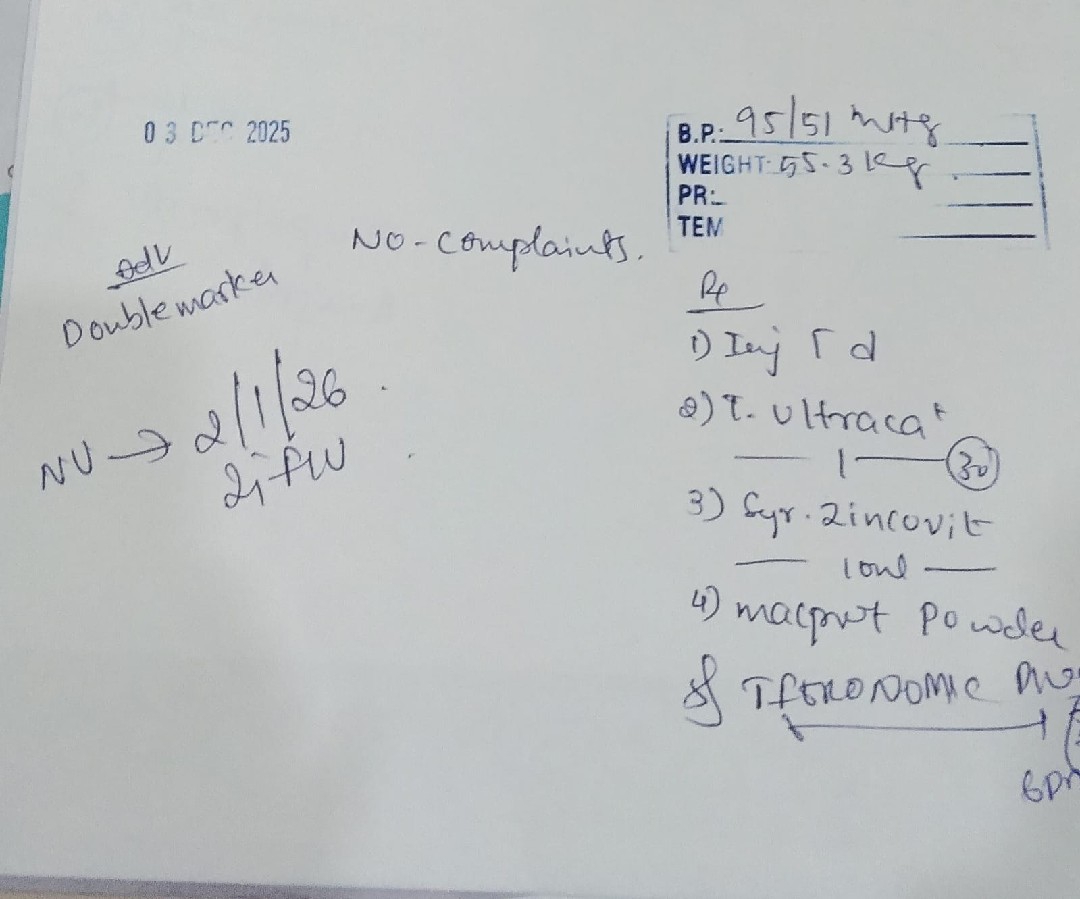 03 DEC 2025
B.P.: 95/51 mmHg
WEIGHT: 55.3 kg
PR:
TEM
No-complaints.
Adv
Doublemarker
NV → 2/1/26
Rx
1) Inj Td
2) T. Ultraca
— 1 — 30
3) Syr. Zincovit
— 10ml —
4) macprot Powder
5) T FERONOMIC
6pm